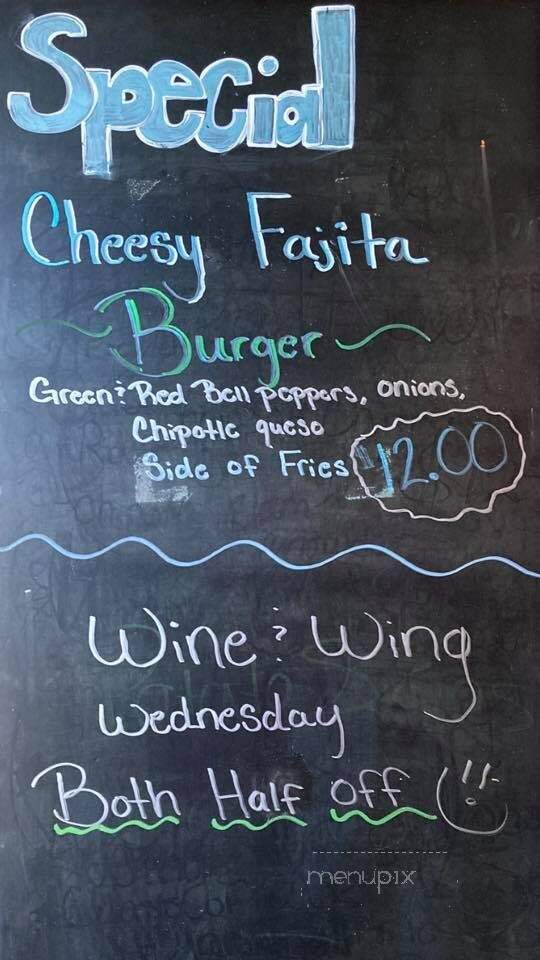 Special
Cheesy Fajita
Burger
Green & Red Bell peppers, onions,
Chipotle queso
Side of Fries $12.00
Wine & Wing
Wednesday
Both Half off
menupix